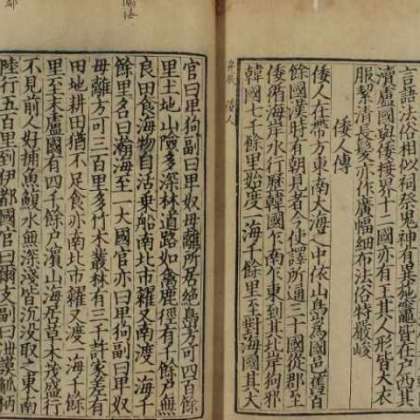 言語法俗相似祠祭鬼神有異施竈皆在戶西其
瀆盧國與倭接界十二國亦有王其人形皆大衣
服絜清長髮亦作廣幅細布法俗特嚴峻
倭人傳
倭人在帶方東南大海之中依山㠀為國邑舊百
餘國漢時有朝見者今使譯所通三十國從郡至
倭循海岸水行歷韓國乍南乍東到其北岸狗邪
韓國七千餘里始度一海千餘里至對海國其大
倭人
官曰卑狗副曰卑奴母離所居絕㠀方可四百餘
里土地山險多深林道路如禽鹿徑有千餘戶無
良田食海物自活乗船南北市糴又南渡一海千
餘里名曰瀚海至一大國官亦曰卑狗副曰卑奴
母離方可三百里多竹木叢林有三千許家差有
田地耕田猶不足食亦南北市糴又渡一海千餘
里至末盧國有四千餘戶濱山海居草木茂盛行
不見前人好捕魚鰒水無深淺皆沉沒取之東南
陸行五百里到伊都國官曰爾支副曰泄謨觚柄